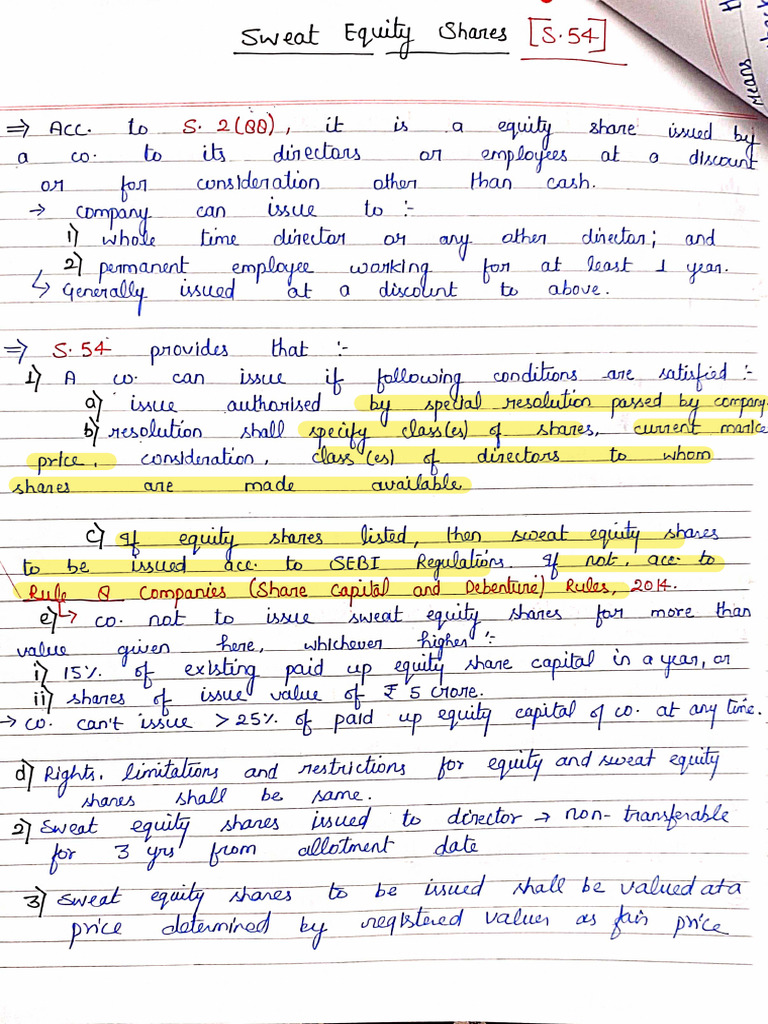 Sweat Equity Shares [S.54]
⇒ Acc. to S. 2(88), it is a equity share issued by
a co. to its directors or employees at a discount
or for consideration other than cash.
→ Company can issue to :-
1) whole time director or any other director; and
2) permanent employee working for at least 1 year.
↳ Generally issued at a discount to above.
⇒ S.54 provides that :-
1) A co. can issue if following conditions are satisfied :-
a) issue authorised by special resolution passed by company.
b) resolution shall specify class(es) of shares, current market
price, consideration, class(es) of directors to whom
shares are made available
c) If equity shares listed, then sweat equity shares
to be issued acc. to SEBI Regulations. If not, acc. to
Rule 8 Companies (Share Capital and Debenture) Rules, 2014.
e) ↳ co. not to issue sweat equity shares for more than
value given here, whichever higher :-
i) 15% of existing paid up equity share capital in a year, or
ii) shares of issue value of ₹ 5 crore.
→ co. can't issue > 25% of paid up equity capital of co. at any time.
d) Rights, limitations and restrictions for equity and sweat equity
shares shall be same.
2) Sweat equity shares issued to director → non-transferable
for 3 yrs from allotment date
3) Sweat equity shares to be issued shall be valued at a
price determined by registered valuer as fair price
means